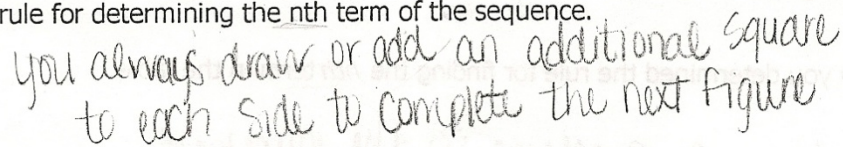 rule for determining the nth term of the sequence.
you always draw or add an additional square
to each side to complete the next figure